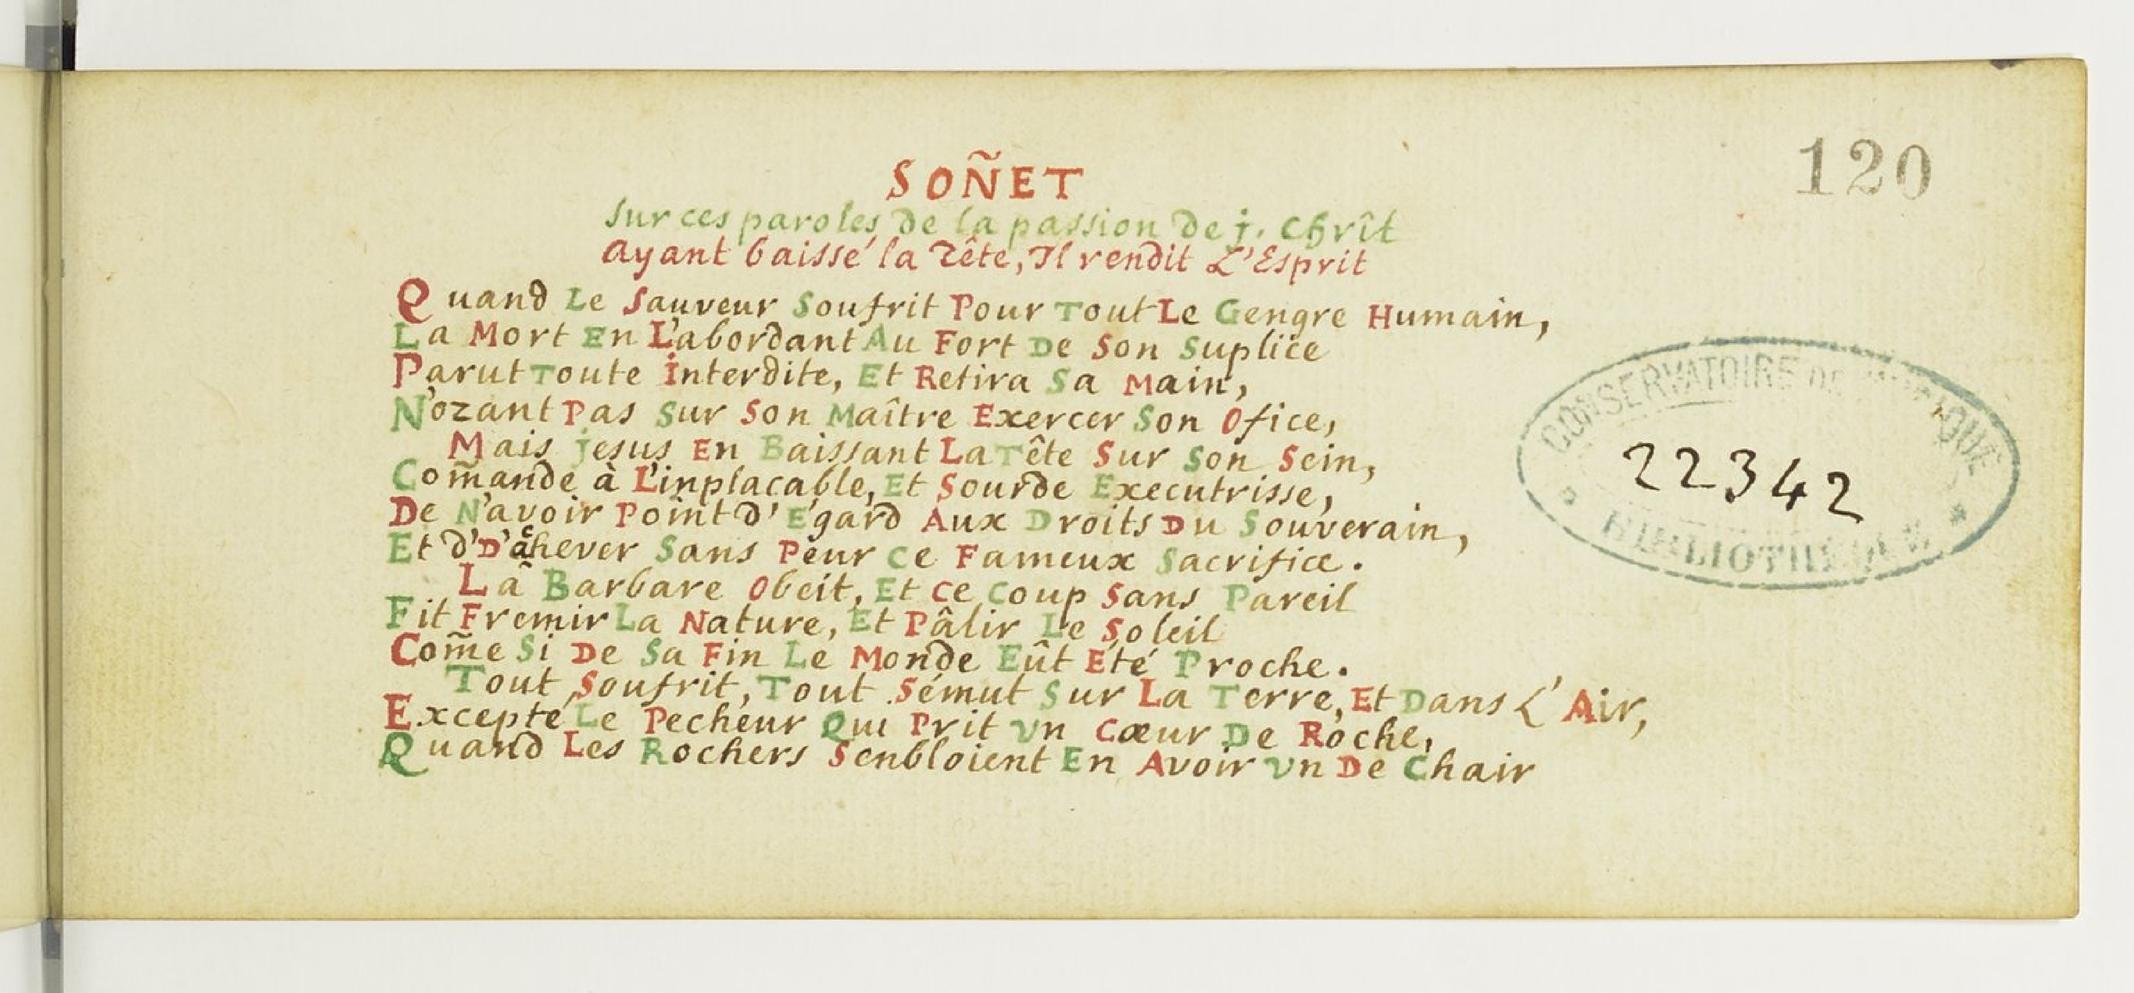 SOÑET
120
sur ces paroles de la passion de j. Chrît
Ayant baissé la Tête, Il rendit L'Esprit
Quand Le Sauveur Soufrit Pour Tout Le Gengre Humain,
La Mort En L'abordant Au Fort De Son Suplice
Parut Toute Interdite, Et Retira Sa Main,
N'ozant Pas Sur Son Maître Exercer Son Ofice,
Mais jesus En Baissant La Tête Sur Son Sein,
Com̃ande à L'inplacable, Et Sourde Executrisse,
De N'avoir Point d'Egard Aux Droits Du Souverain,
Et d'D'achever Sans Peur Ce Fameux Sacrifice.
La Barbare Obeit, Et Ce Coup Sans Pareil
Fit Fremir La Nature, Et Pâlir Le Soleil
Com̃e Si De Sa Fin Le Monde Eût Eté Proche.
Tout Soufrit, Tout S'émut Sur La Terre, Et Dans L'Air,
Excepté Le Pecheur Qui Prit Vn Cœur De Roche,
Quand Les Rochers Senbloient En Avoir Vn De Chair
CONSERVATOIRE DE MUSIQUE
22342
* BIBLIOTHÈQUE *